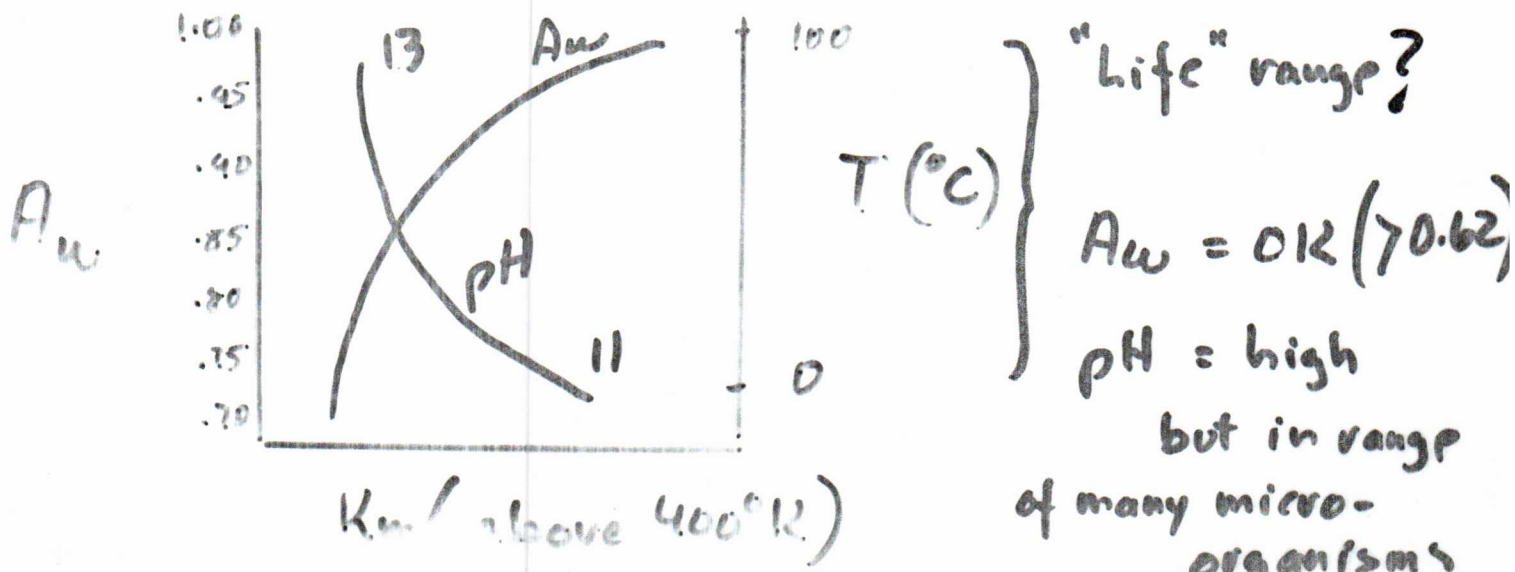 1.00
.95
.90
.85
.80
.75
.70
Aw
13
Aw
pH
11
100
0
T (°C)
Km ( above 400°K)
"Life" range?
Aw = OK (>0.62)
pH = high
but in range
of many micro-
organisms